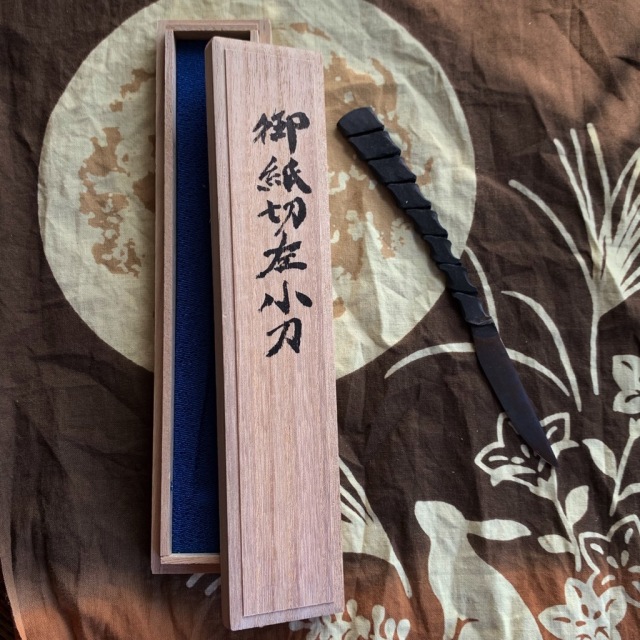 御紙切左小刀